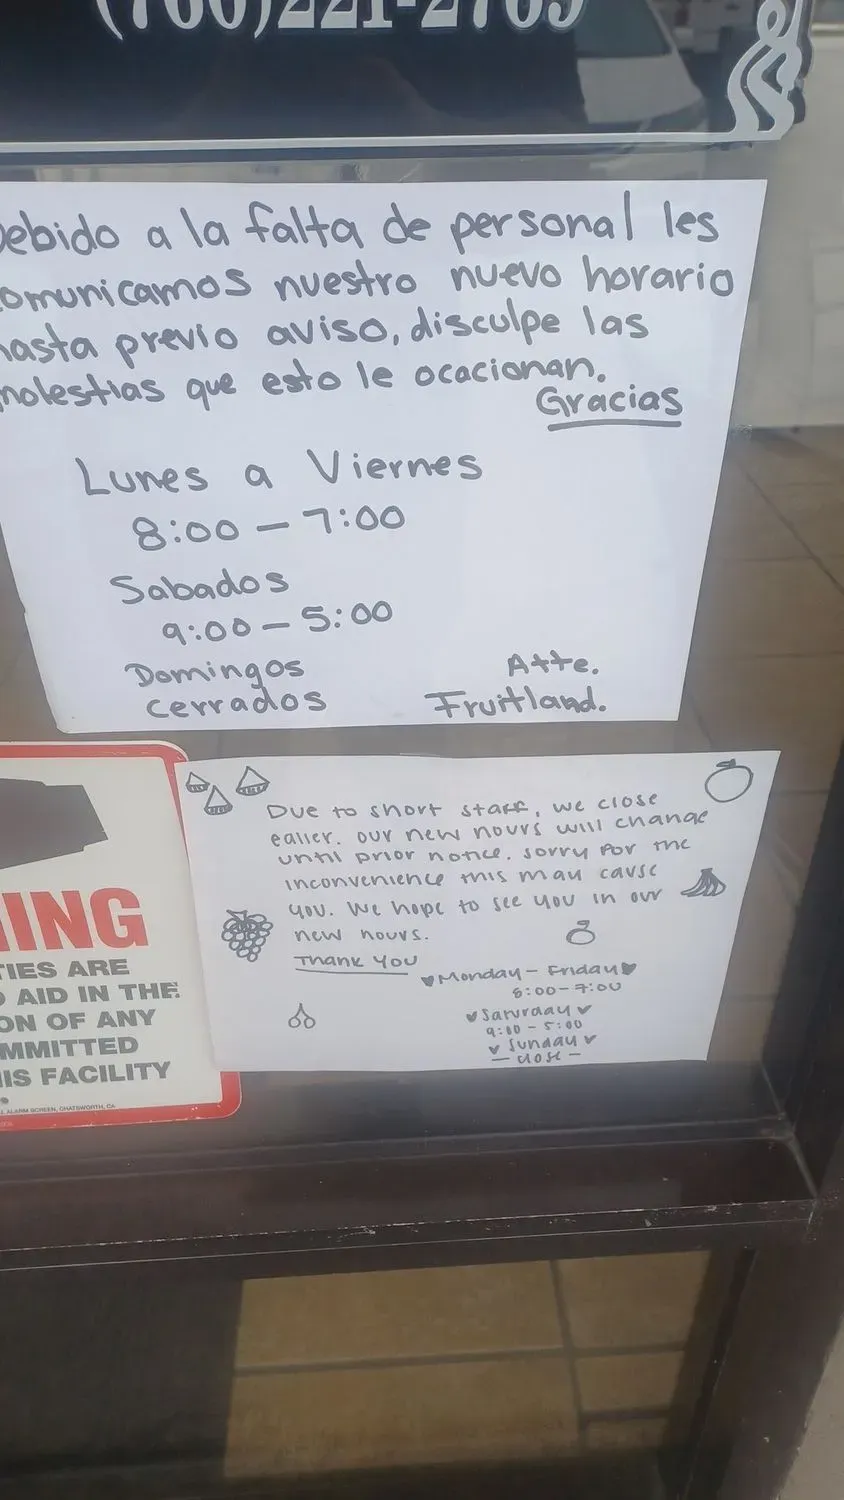 (760)221-2709
Debido a la falta de personal les
comunicamos nuestro nuevo horario
hasta previo aviso, disculpe las
molestias que esto le ocacionan.
Gracias
Lunes a Viernes
8:00 - 7:00
Sabados
9:00 - 5:00
Domingos
cerrados
Atte.
Fruitland.
Due to short staff, we close
ealier. our new hours will change
until prior notice. sorry for the
inconvenience this may cause
you. We hope to see you in our
new hours.
Thank You
♥Monday - Friday♥
8:00-7:00
♥Saturday♥
9:00 - 5:00
♥Sunday♥
- close -
ING
TIES ARE
AID IN THE
ON OF ANY
MMITTED
IS FACILITY
ALARM SCREEN, CHATSWORTH, CA